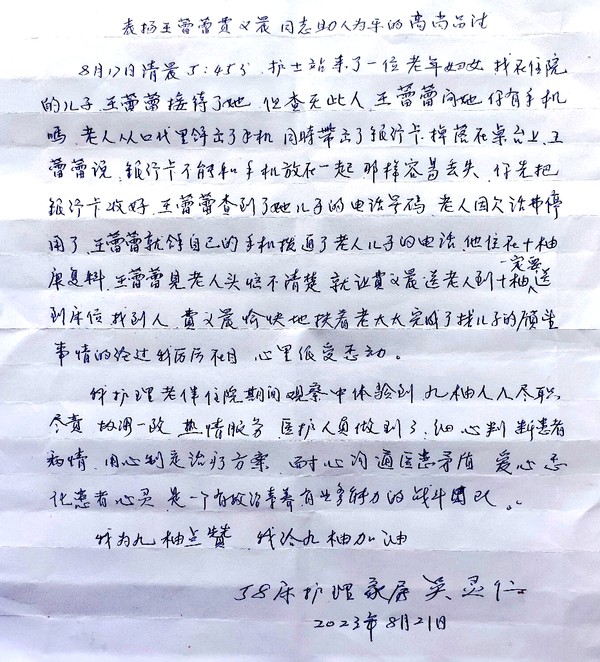 表扬王蕾蕾贾义晨同志助人为乐的高尚品德
8月17日清晨5:45分.护士站来了一位老年妇女找不住院
的儿子.王蕾蕾接待了她但查无此人.王蕾蕾问她你有手机
吗.老人从口代里拿出了手机同时带出了银行卡掉落在桌台上.王
蕾蕾说.银行卡不能和手机放在一起那样容易丢失.你先把
银行卡收好.王蕾蕾查到了她儿子的电话号码.老人因欠话费停
用了.王蕾蕾就拿自己的手机拨通了老人儿子的电话.他住在十楼
康复科.王蕾蕾見老人头恼不清楚就让贾义晨送老人到十楼一定要送
到床位找到人.贾义晨愉快地扶着老太太完成了找儿子的愿望
事情的经过我历历在目心里很受感动。
我护理老伴住院期间观察中体验到九楼人人尽职
尽责协调一致热情服务医护人员做到了.细心判断患者
病情.用心制定治疗方案耐心沟通医患矛盾爱心感
化患者心灵是一个有政治素养有业务能力的战斗团队。
我为九楼点赞我给九楼加油
58床护理家属吴灵仁
2023年8月21日